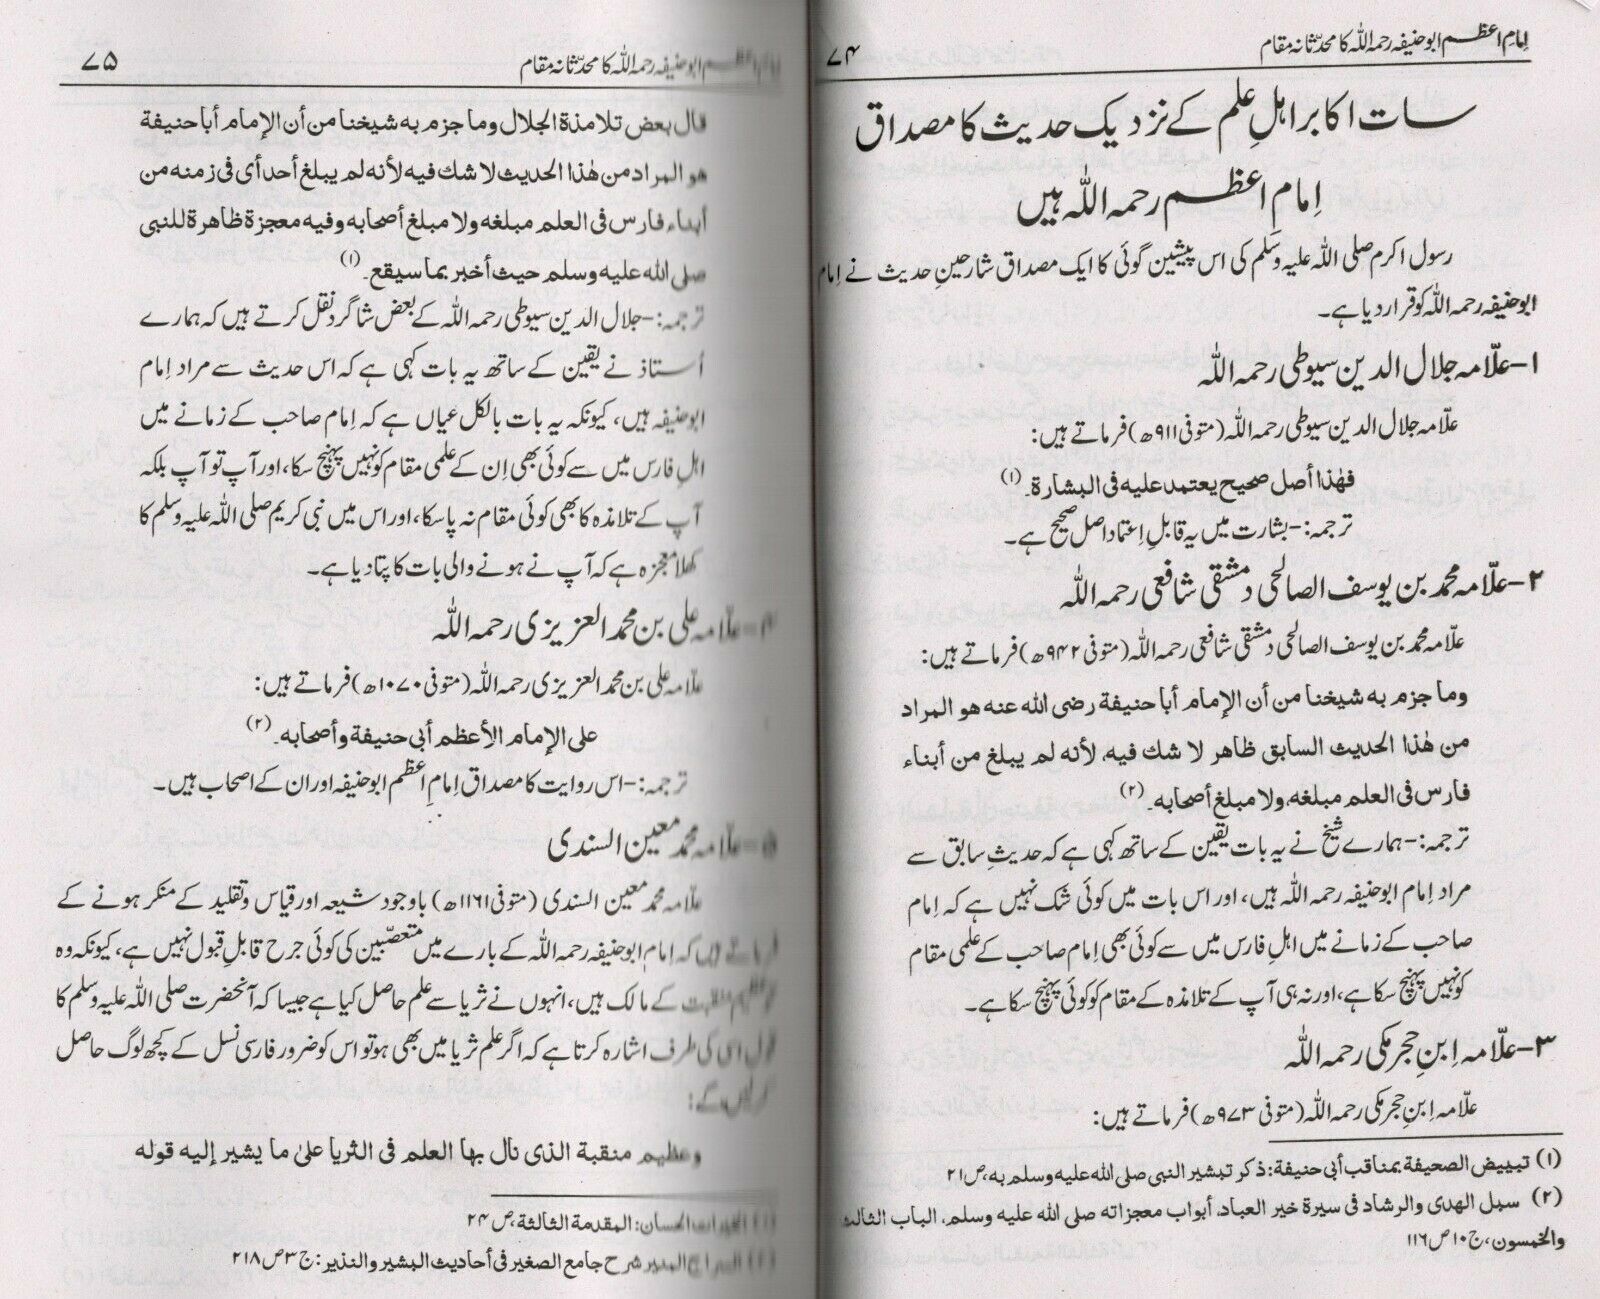 امامِ اعظم ابوحنیفہ رحمہ اللہ کا محدّثانہ مقام
۷۴
سات اکابر اہلِ علم کے نزدیک حدیث کا مصداق
اِمامِ اعظم رحمہ اللہ ہیں
رسول اکرم صلی اللہ علیہ وسلم کی اس پیشین گوئی کا ایک مصداق شارحینِ حدیث نے اِمام
ابوحنیفہ رحمہ اللہ کو قرار دیا ہے۔
۱-علّامہ جلال الدین سیوطی رحمہ اللہ
علّامہ جلال الدین سیوطی رحمہ اللہ (متوفی ۹۱۱ھ) فرماتے ہیں:
فهٰذا أصل صحیح یعتمد علیه فی البشارة۔ (۱)
ترجمہ:-بشارت میں یہ قابلِ اِعتماد اصل صحیح ہے۔
۲-علّامہ محمد بن یوسف الصالحی دمشقی شافعی رحمہ اللہ
علّامہ محمد بن یوسف الصالحی دمشقی شافعی رحمہ اللہ (متوفی ۹۴۲ھ) فرماتے ہیں:
وما جزم به شیخنا من أن الإمام أبا حنیفة رضی الله عنه هو المراد
من هٰذا الحدیث السابق ظاهر لا شك فیه، لأنه لم یبلغ من أبناء
فارس فی العلم مبلغه، ولا مبلغ أصحابه۔ (۲)
ترجمہ:-ہمارے شیخ نے یہ بات یقین کے ساتھ کہی ہے کہ حدیثِ سابق سے
مراد اِمام ابوحنیفہ رحمہ اللہ ہیں، اور اس بات میں کوئی شک نہیں ہے کہ اِمام
صاحب کے زمانے میں اہلِ فارس میں سے کوئی بھی اِمام صاحب کے علمی مقام
کو نہیں پہنچ سکا ہے، اور نہ ہی آپ کے تلامذہ کے مقام کو کوئی پہنچ سکا ہے۔
۳-علّامہ اِبنِ حجر مکی رحمہ اللہ
علّامہ اِبنِ حجر مکی رحمہ اللہ (متوفی ۹۷۳ھ) فرماتے ہیں:
(۱) تبییض الصحیفة بمناقب أبی حنیفة: ذکر تبشیر النبی صلی الله علیه وسلم به، ص۲۱
(۲) سبل الهدی والرشاد فی سیرة خیر العباد، أبواب معجزاته صلی الله علیه وسلم، الباب الثالث
والخمسون، ج۱۰ ص۱۱۶
امامِ اعظم ابوحنیفہ رحمہ اللہ کا محدّثانہ مقام
۷۵
قال بعض تلامذة الجلال وما جزم به شیخنا من أن الإمام أبا حنیفة
هو المراد من هٰذا الحدیث لا شك فیه لأنه لم یبلغ أحد أی فی زمنه من
أبناء فارس فی العلم مبلغه ولا مبلغ أصحابه وفیه معجزة ظاهرة للنبی
صلی الله علیه وسلم حیث أخبر بما سیقع۔ (۱)
ترجمہ:-جلال الدین سیوطی رحمہ اللہ کے بعض شاگرد نقل کرتے ہیں کہ ہمارے
اُستاذ نے یقین کے ساتھ یہ بات کہی ہے کہ اس حدیث سے مراد اِمام
ابوحنیفہ ہیں، کیونکہ یہ بات بالکل عیاں ہے کہ اِمام صاحب کے زمانے میں
اہلِ فارس میں سے کوئی بھی اِن کے علمی مقام کو نہیں پہنچ سکا، اور آپ تو آپ بلکہ
آپ کے تلامذہ کا بھی کوئی مقام نہ پا سکا، اور اس میں نبی کریم صلی اللہ علیہ وسلم کا
کھلا معجزہ ہے کہ آپ نے ہونے والی بات کا پتا دیا ہے۔
۴-علّامہ علی بن محمد العزیزی رحمہ اللہ
علّامہ علی بن محمد العزیزی رحمہ اللہ (متوفی ۱۰۷۰ھ) فرماتے ہیں:
علی الإمام الأعظم أبی حنیفة وأصحابه۔ (۲)
ترجمہ:-اس روایت کا مصداق اِمامِ اعظم ابوحنیفہ اور ان کے اصحاب ہیں۔
۵-علّامہ محمد معین السندی
علّامہ محمد معین السندی (متوفی ۱۱۶۱ھ) باوجود شیعہ اور قیاس و تقلید کے منکر ہونے کے
فرماتے ہیں کہ اِمام ابوحنیفہ رحمہ اللہ کے بارے میں متعصّبین کی کوئی جرح قابلِ قبول نہیں ہے، کیونکہ وہ
عظیم منقبت کے مالک ہیں، انہوں نے ثریا سے علم حاصل کیا ہے جیسا کہ آنحضرت صلی اللہ علیہ وسلم کا
قول اسی کی طرف اشارہ کرتا ہے کہ اگر علم ثریا میں بھی ہو تو اس کو ضرور فارسی نسل کے کچھ لوگ حاصل
کرلیں گے:
وعظیم منقبة الذی نال بها العلم فی الثریا علیٰ ما یشیر إلیه قوله
(۱) الخیرات الحسان: المقدمة الثالثة، ص۲۴
(۲) السراج المنیر شرح جامع الصغیر فی أحادیث البشیر والنذیر: ج۳ ص۲۱۸